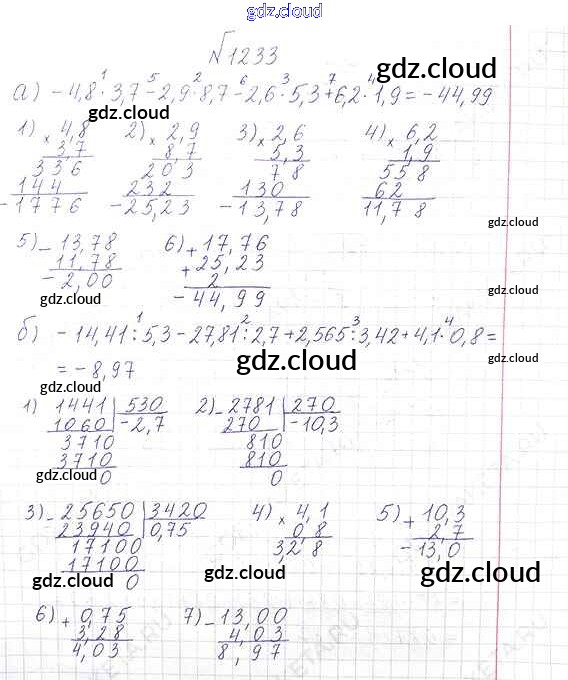 gdz.cloud
№1233
gdz.cloud
а) -4,8 · 3,7 - 2,9 · 8,7 - 2,6 · 5,3 + 6,2 · 1,9 = -44,99
1 5 2 6 3 7 4
1) × 4,8 2) × 2,9 3) × 2,6 4) × 6,2
3,7 8,7 5,3 1,9
336 203 78 558
144 232 130 62
-1776 -25,23 -13,78 11,78
gdz.cloud gdz.cloud gdz.cloud
gdz.cloud
5) - 13,78 6) + 17,76
11,78 + 25,23
- 2,00 2
gdz.cloud - 44,99
gdz.cloud
б) -14,41 : 5,3 - 27,81 : 2,7 + 2,565 : 3,42 + 4,1 · 0,8 =
1 2 3 4
= -8,97
gdz.cloud
gdz.cloud gdz.cloud
1) 1441 530 2) - 2781 270
1060 -2,7 270 -10,3
3710 810
3710 810
gdz.cloud 0 0
gdz.cloud
3) - 25650 3420 4) × 4,1 5) + 10,3
23940 0,75 0,8 2,7
17100 3,28 -13,0
17100
0
gdz.cloud gdz.cloud gdz.cloud
6) + 0,75 7) - 13,00
3,28 4,03
4,03 8,97